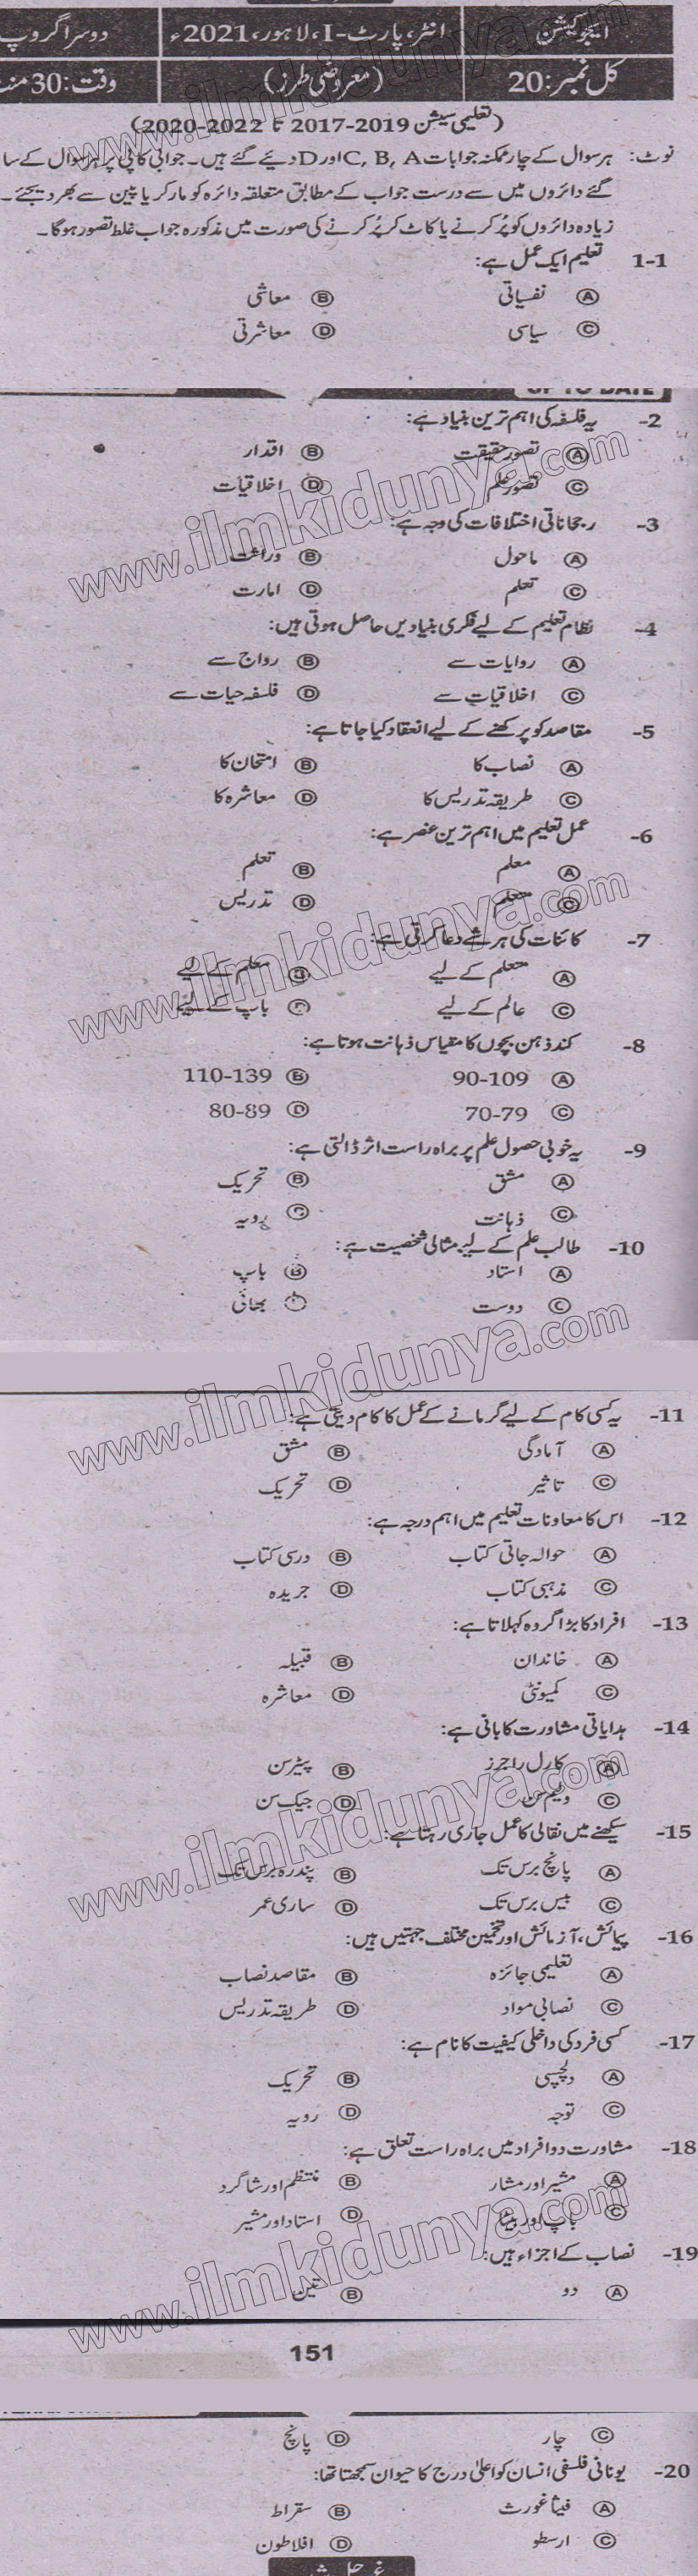 ایجوکیشن
انٹر، پارٹ-I، لاہور، 2021ء
دوسرا گروپ
کل نمبر: 20
(معروضی طرز)
وقت: 30 منٹ
(تعلیمی سیشن 2019-2017 تا 2022-2020)
نوٹ: ہر سوال کے چار ممکنہ جوابات C, B, A اور D دیئے گئے ہیں۔ جوابی کاپی پر ہر سوال کے سا
گئے دائروں میں سے درست جواب کے مطابق متعلقہ دائرہ کو مارکر یا پین سے بھر دیجئے۔
زیادہ دائروں کو پُر کرنے یا کاٹ کر پُر کرنے کی صورت میں مذکورہ جواب غلط تصور ہوگا۔
1-1 تعلیم ایک عمل ہے:
A نفسیاتی B معاشی
C سیاسی D معاشرتی
UP TO DATE
2- یہ فلسفہ کی اہم ترین بنیاد ہے:
A تصور حقیقت B اقدار
C تصور علم D اخلاقیات
3- رجحاناتی اختلافات کی وجہ ہے:
A ماحول B وراثت
C تعلم D امارت
4- نظام تعلیم کے لیے فکری بنیادیں حاصل ہوتی ہیں:
A روایات سے B رواج سے
C اخلاقیات سے D فلسفہ حیات سے
5- مقاصد کو پرکھنے کے لیے انعقاد کیا جاتا ہے:
A نصاب کا B امتحان کا
C طریقہ تدریس کا D معاشرہ کا
6- عمل تعلیم میں اہم ترین عنصر ہے:
A معلم B تعلم
C متعلم D تدریس
7- کائنات کی ہر شے دعا کرتی ہے:
A متعلم کے لیے B معلم کے لیے
C عالم کے لیے D باپ کے لیے
8- کند ذہن بچوں کا مقیاس ذہانت ہوتا ہے:
A 90-109 B 110-139
C 70-79 D 80-89
9- یہ خوبی حصول علم پر براہ راست اثر ڈالتی ہے:
A مشق B تحریک
C ذہانت D رویہ
10- طالب علم کے لیے مثالی شخصیت ہے:
A استاد B باپ
C دوست D بھائی
11- یہ کسی کام کے لیے گرمانے کے عمل کا کام دیتی ہے:
A آمادگی B مشق
C تاثیر D تحریک
12- اس کا معاونات تعلیم میں اہم درجہ ہے:
A حوالہ جاتی کتاب B درسی کتاب
C مذہبی کتاب D جریدہ
13- افراد کا بڑا گروہ کہلاتا ہے:
A خاندان B قبیلہ
C کمیونٹی D معاشرہ
14- ہدایاتی مشاورت کا بانی ہے:
A کارل راجرز B پیٹرسن
C ولیم سن D جیک سن
15- سیکھنے میں نقالی کا عمل جاری رہتا ہے:
A پانچ برس تک B پندرہ برس تک
C بیس برس تک D ساری عمر
16- پیمائش، آزمائش اور تخمین مختلف جہتیں ہیں:
A تعلیمی جائزہ B مقاصد نصاب
C نصابی مواد D طریقہ تدریس
17- کسی فرد کی داخلی کیفیت کا نام ہے:
A دلچسپی B تحریک
C توجہ D رویہ
18- مشاورت دو افراد میں براہ راست تعلق ہے:
A مشیر اور مشار B منتظم اور شاگرد
C باپ اور بیٹا D استاد اور مشیر
19- نصاب کے اجزاء ہیں:
A دو B تین
151
C چار D پانچ
20- یونانی فلسفی انسان کو اعلیٰ درج کا حیوان سمجھتا تھا:
A فیثاغورث B سقراط
C ارسطو D افلاطون
www.ilmkidunya.com
www.ilmkidunya.com
www.ilmkidunya.com
www.ilmkidunya.com
www.ilmkidunya.com
www.ilmkidunya.com